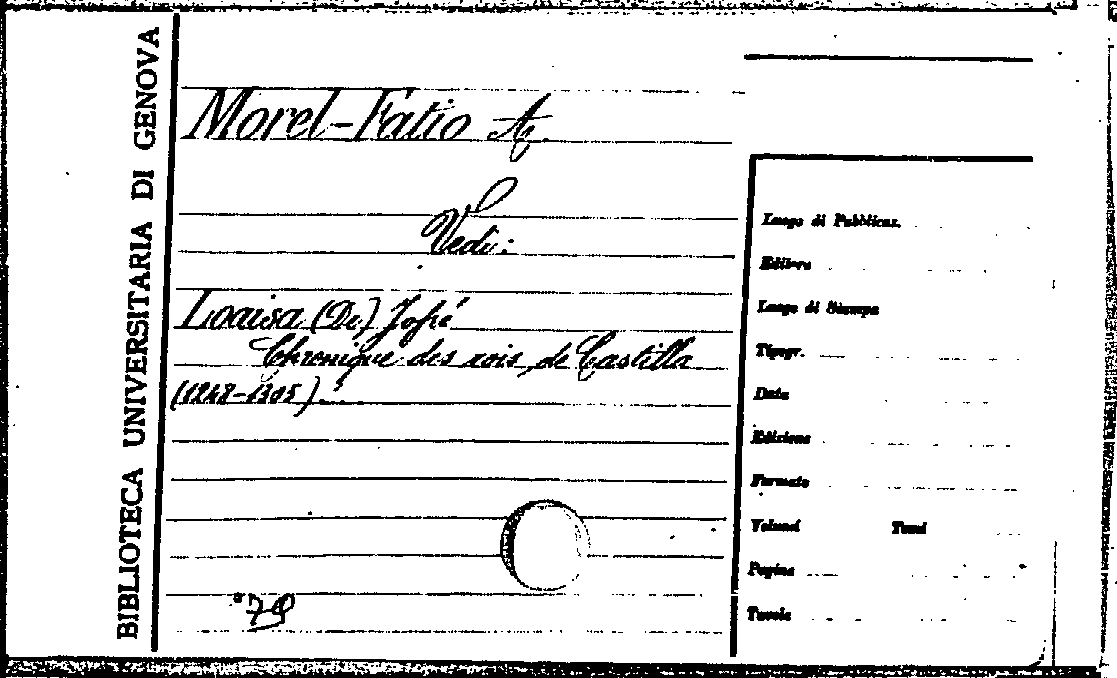 BIBLIOTECA UNIVERSITARIA DI GENOVA
Morel-Fatio A.
Vedi:
Loaisa (De) Jofré
Chronique des rois de Castilla
(1248-1305).
Luogo di Pubblicaz.
Editore
Luogo di Stampa
Tipogr.
Data
Edizione
Formato
Volumi Tomi
Pagine
Tavole